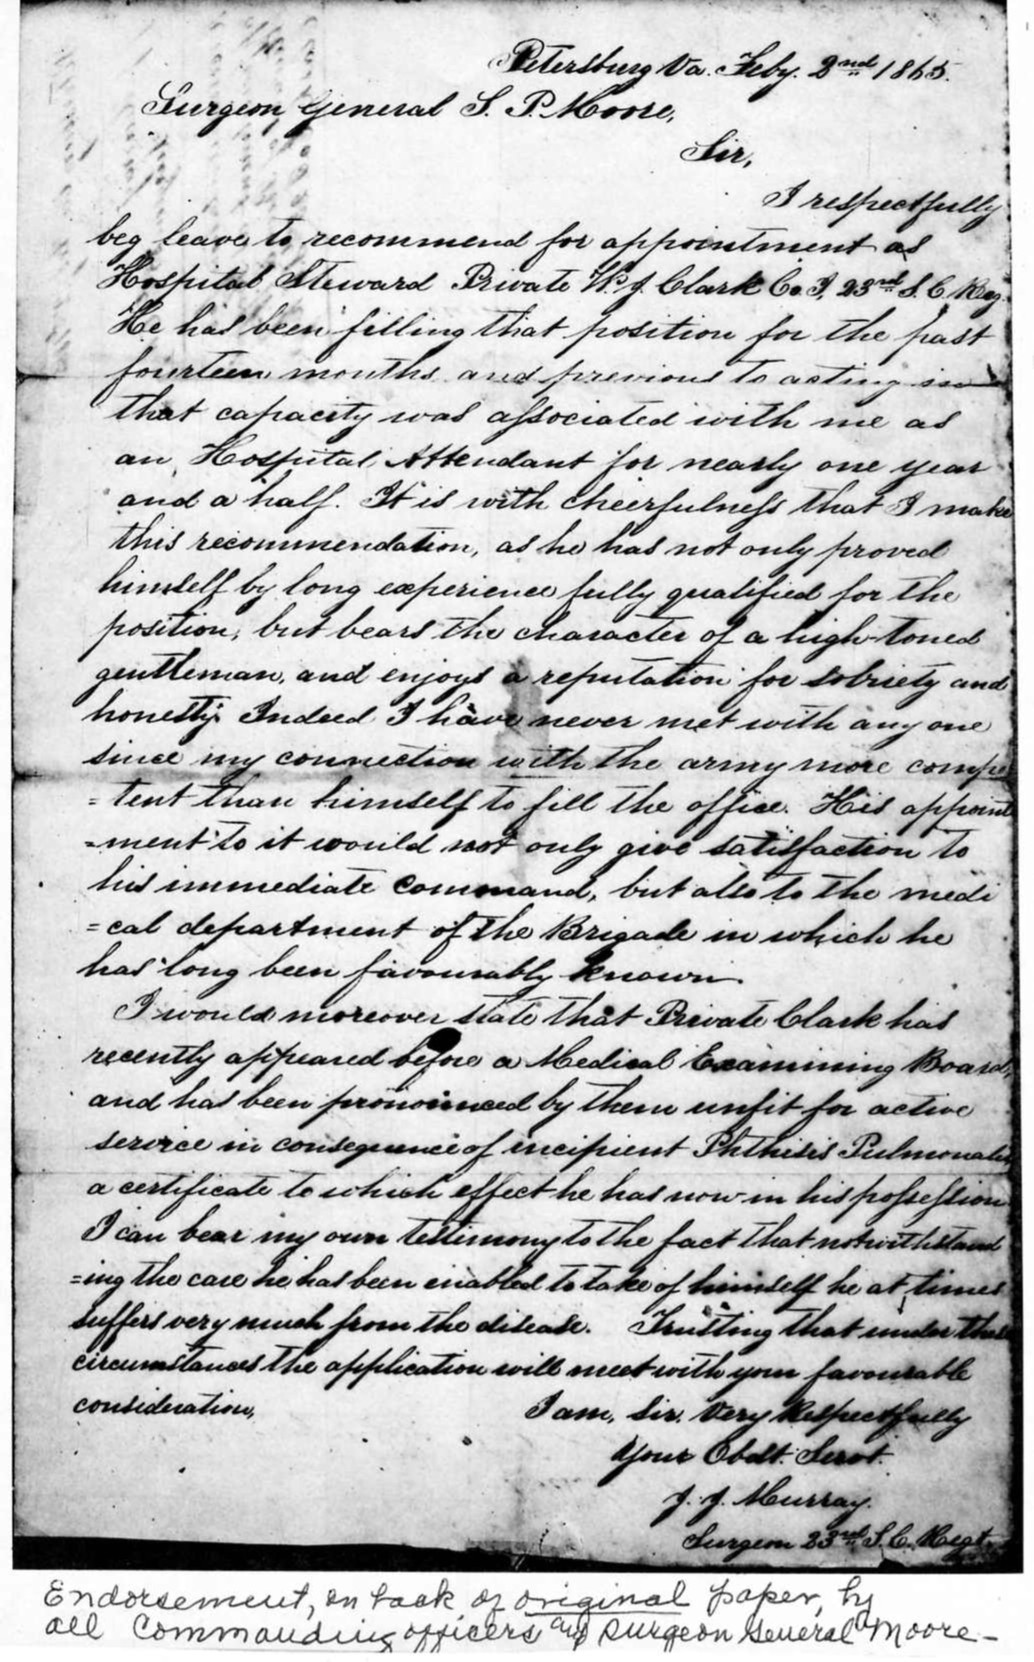 Petersburg Va. Feby. 2nd 1865.
Surgeon General S. P. Moore,
Sir,
I respectfully
beg leave to recommend for appointment as
Hospital Steward Private W. J. Clark Co. I, 23rd S. C. Reg.
He has been filling that position for the past
fourteen months and previous to acting in
that capacity was associated with me as
an Hospital Attendant for nearly one year
and a half. It is with cheerfulness that I make
this recommendation, as he has not only proved
himself by long experience fully qualified for the
position, but bears the character of a high-toned
gentleman, and enjoys a reputation for sobriety and
honesty. Indeed I have never met with any one
since my connection with the army more compe
=tent than himself to fill the office. His appoint
=ment to it would not only give satisfaction to
his immediate command, but also to the medi
=cal department of the Brigade in which he
has long been favourably known.
I would moreover state that Private Clark has
recently appeared before a Medical Examining Board,
and has been pronounced by them unfit for active
service in consequence of incipient Phthisis Pulmonalis
a certificate to which effect he has now in his possession
I can bear my own testimony to the fact that notwithstand
=ing the care he has been enabled to take of himself he at times
suffers very much from the disease. Trusting that under these
circumstances the application will meet with your favourable
consideration,
I am, Sir, Very Respectfully
Your Obdt. Servt.
J. J. Murray.
Surgeon 23rd S. C. Regt.
Endorsement, on back of original paper, by
all Commanding officers and Surgeon General Moore-